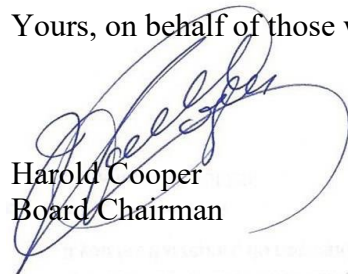 Yours, on behalf of those
Harold Cooper
Board Chairman